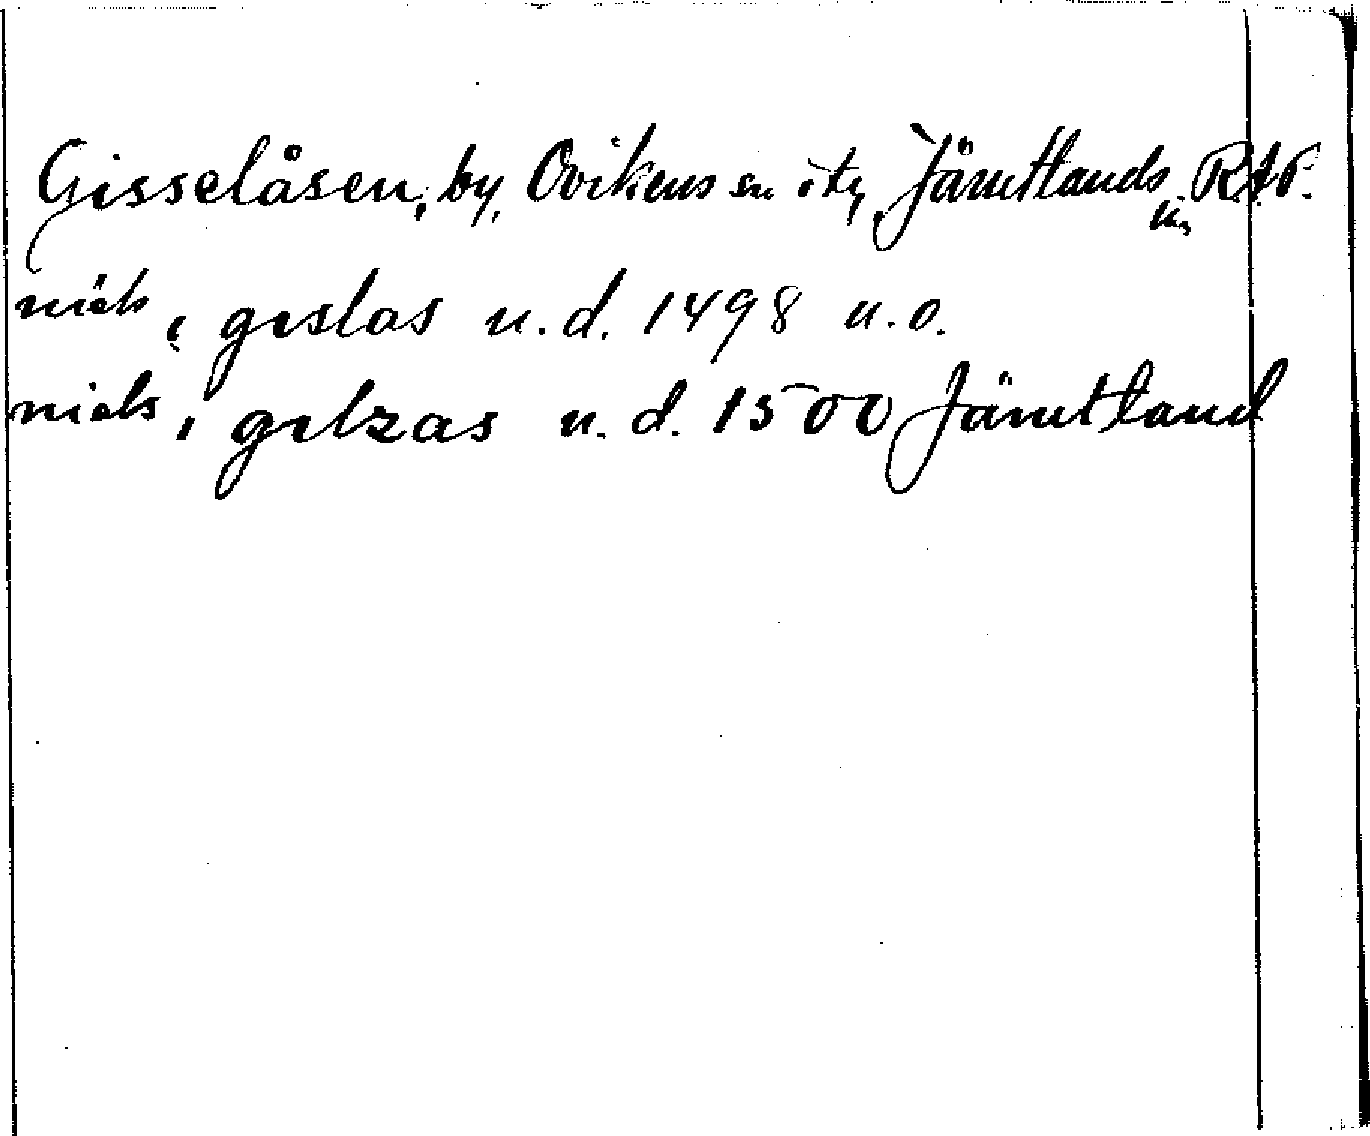 Gisselåsen, by, Ovikens sn o tg, Jämtlands län, RAP.
niels, i gislas u.d. 1498 u.o.
niels, i gilzas u.d. 1500 Jämtland